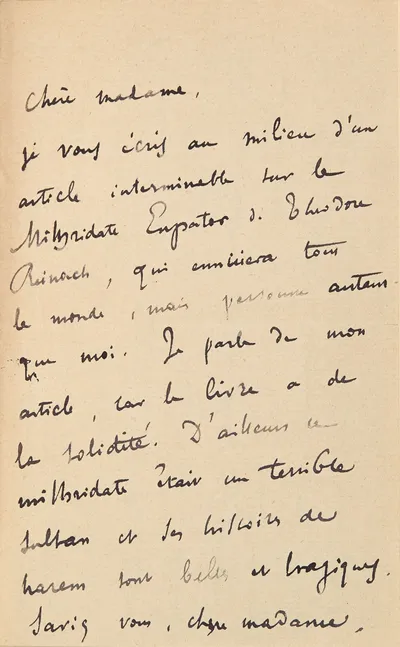 Chère madame,
je vous écris au milieu d'un
article interminable sur le
Mithridate Eupator de Théodore
Reinach, qui ennuiera tout
le monde, mais personne autant
que moi. Je parle de mon
article, car le livre a de
la solidité. D'ailleurs ce
mithridate était un terrible
sultan et ses histoires de
harem sont belles et tragiques.
Savez vous, chère madame,